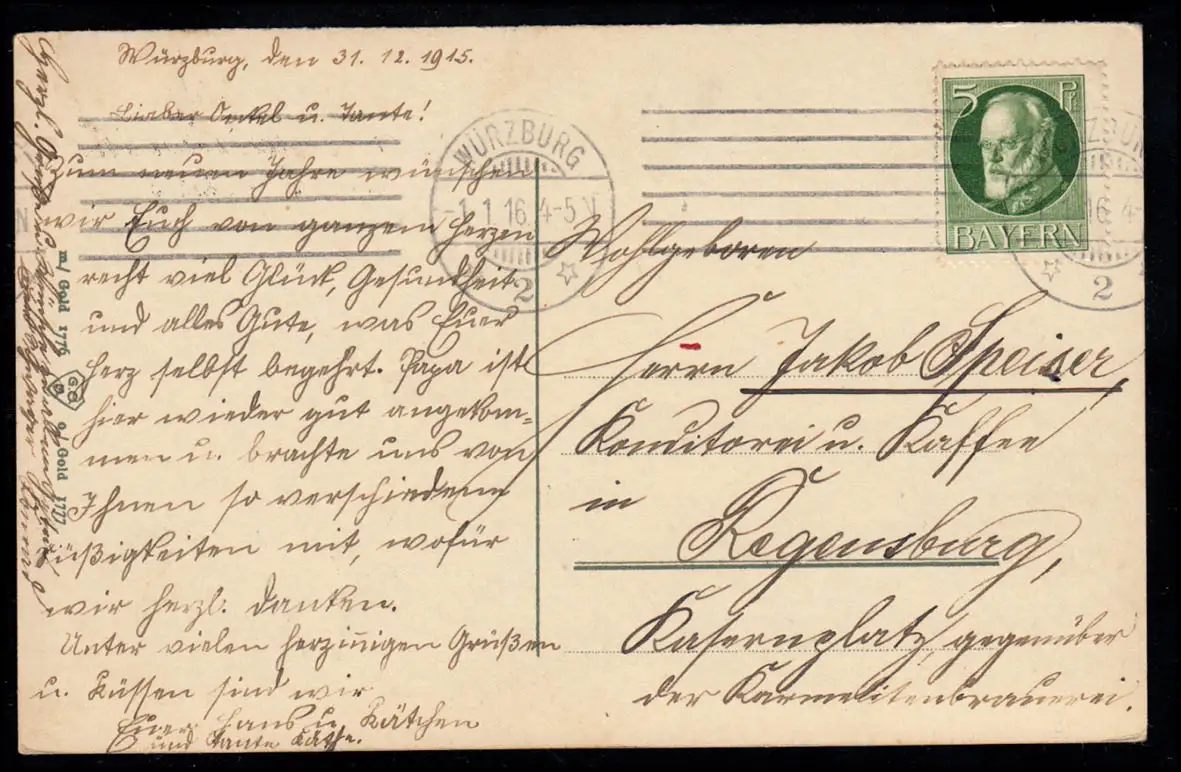 Würzburg, den 31. 12. 1915.
Lieber Onkel u. Tante!
Zum neuen Jahre wünschen
wir Euch von ganzem Herzen
recht viel Glück, Gesundheit
und alles Gute, was Euer
Herz selbst begehrt. Papa ist
hier wieder gut angekom-
men u. brachte uns von
Ihnen so verschiedene
Süßigkeiten mit, wofür
wir herzl. danken.
Unter vielen herzinnigen Grüßen
u. Küssen sind wir
Euer Hans u. Kätchen
und Tante Käthe.
Herzl.
m/ Gold 1776
G.G.
o/ Gold 1777
WÜRZBURG
-1.1.16. 4-5 V
2
5 Pf
BAYERN
WÜRZBURG
16. 4-
2
Wohlgeboren
Herrn Jakob Speiser
Konditorei u. Kaffee
in
Regensburg,
Kasernplatz, gegenüber
der Karmelitenbrauerei.